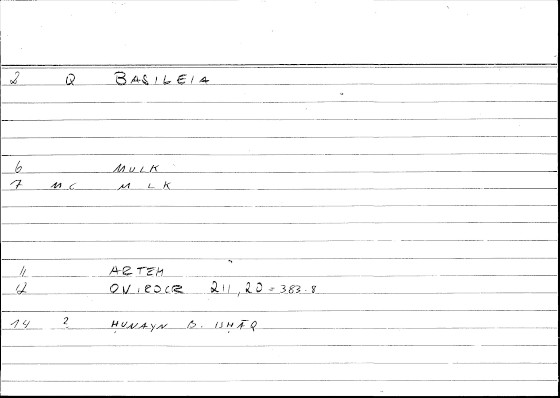 2 Q BASILEIA
6 MULK
7 MC M L K
11 ARTEM
12 211,20 = 383.8
14 2 ḤUNAYN B. ISḤĀQ